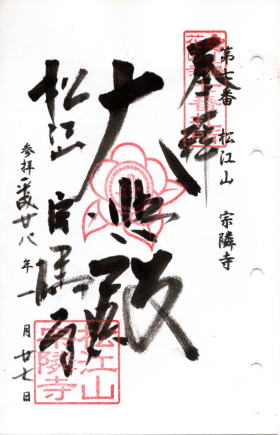 第七番 松江山 宗隣寺
奉拝
大悲殿
松江山 宗隣寺
参拝 平成廿八年一月廿七日
松江山
宗隣寺